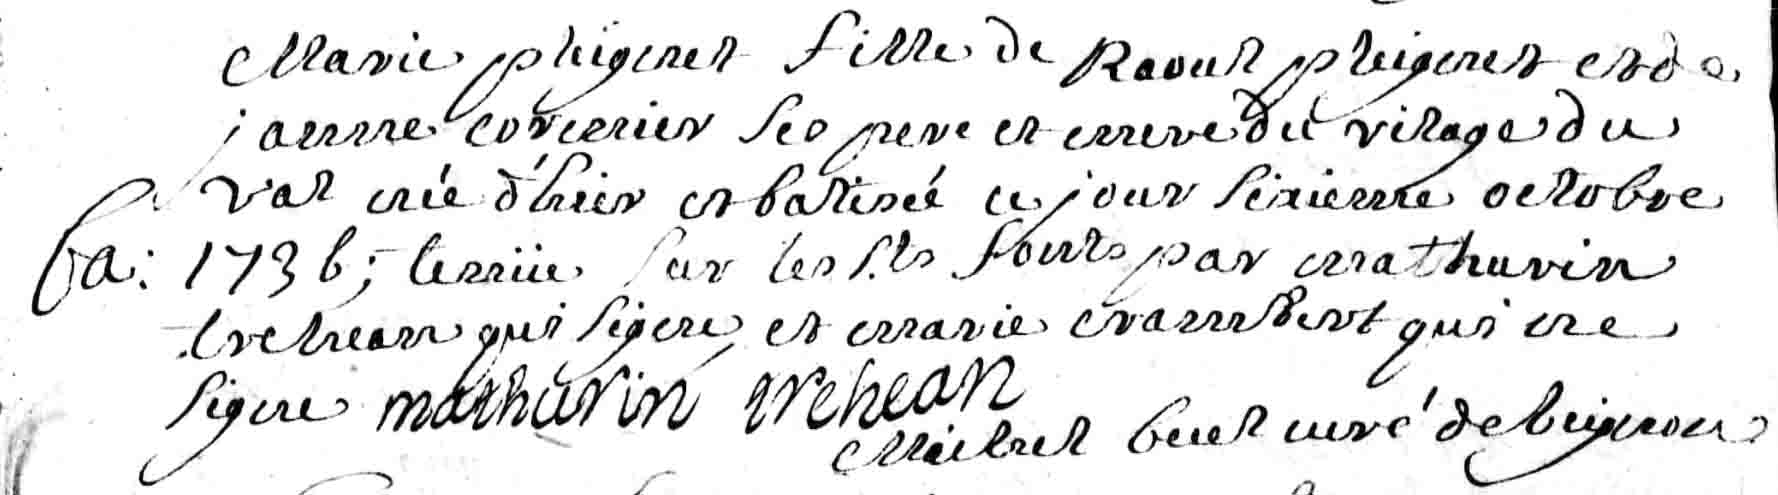 Marie pleignet fille de Raoul pleignet et de
janne cormier ses pere et mere du vilage du
val née d'hier et batisée ce jour sixieme octobre
ba: 1736; tenüe sur les sts fonts par mathurin
trehean qui signe, et marie crambert qui ne
signe mathurin trehean
buet curé de beignon